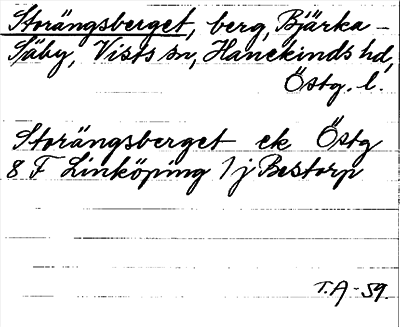 Storängsberget, berg, Bjärka-
Säby, Vists sn, Hanekinds hd,
Östg. l.
Storängsberget ek Östg
8 F Linköping 1 j Bestorp
T.A-59.